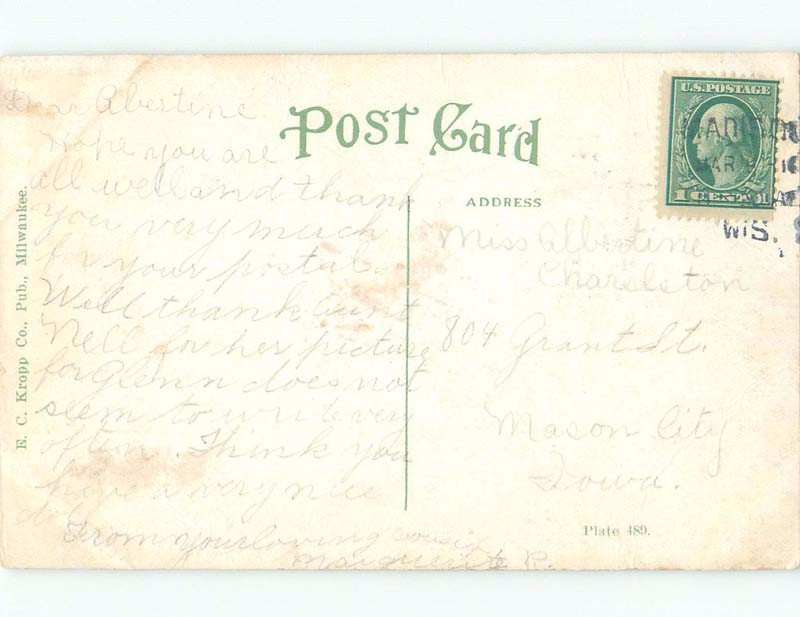 Dear Abertine
Hope you are
all well and thank
you very much
for your postal.
Well thank Aunt
Nell for her picture
for Glenn does not
seem to write very
often. I think you
have a very nice
From your loving cousin
Marguerite R.
E. C. Kropp Co., Pub., Milwaukee.
POST CARD
ADDRESS
Miss Albertine
Charelston
804 Grant St.
Mason City
Iowa.
Plate 489.
U.S. POSTAGE
1 CENT 1
MAR
WIS.